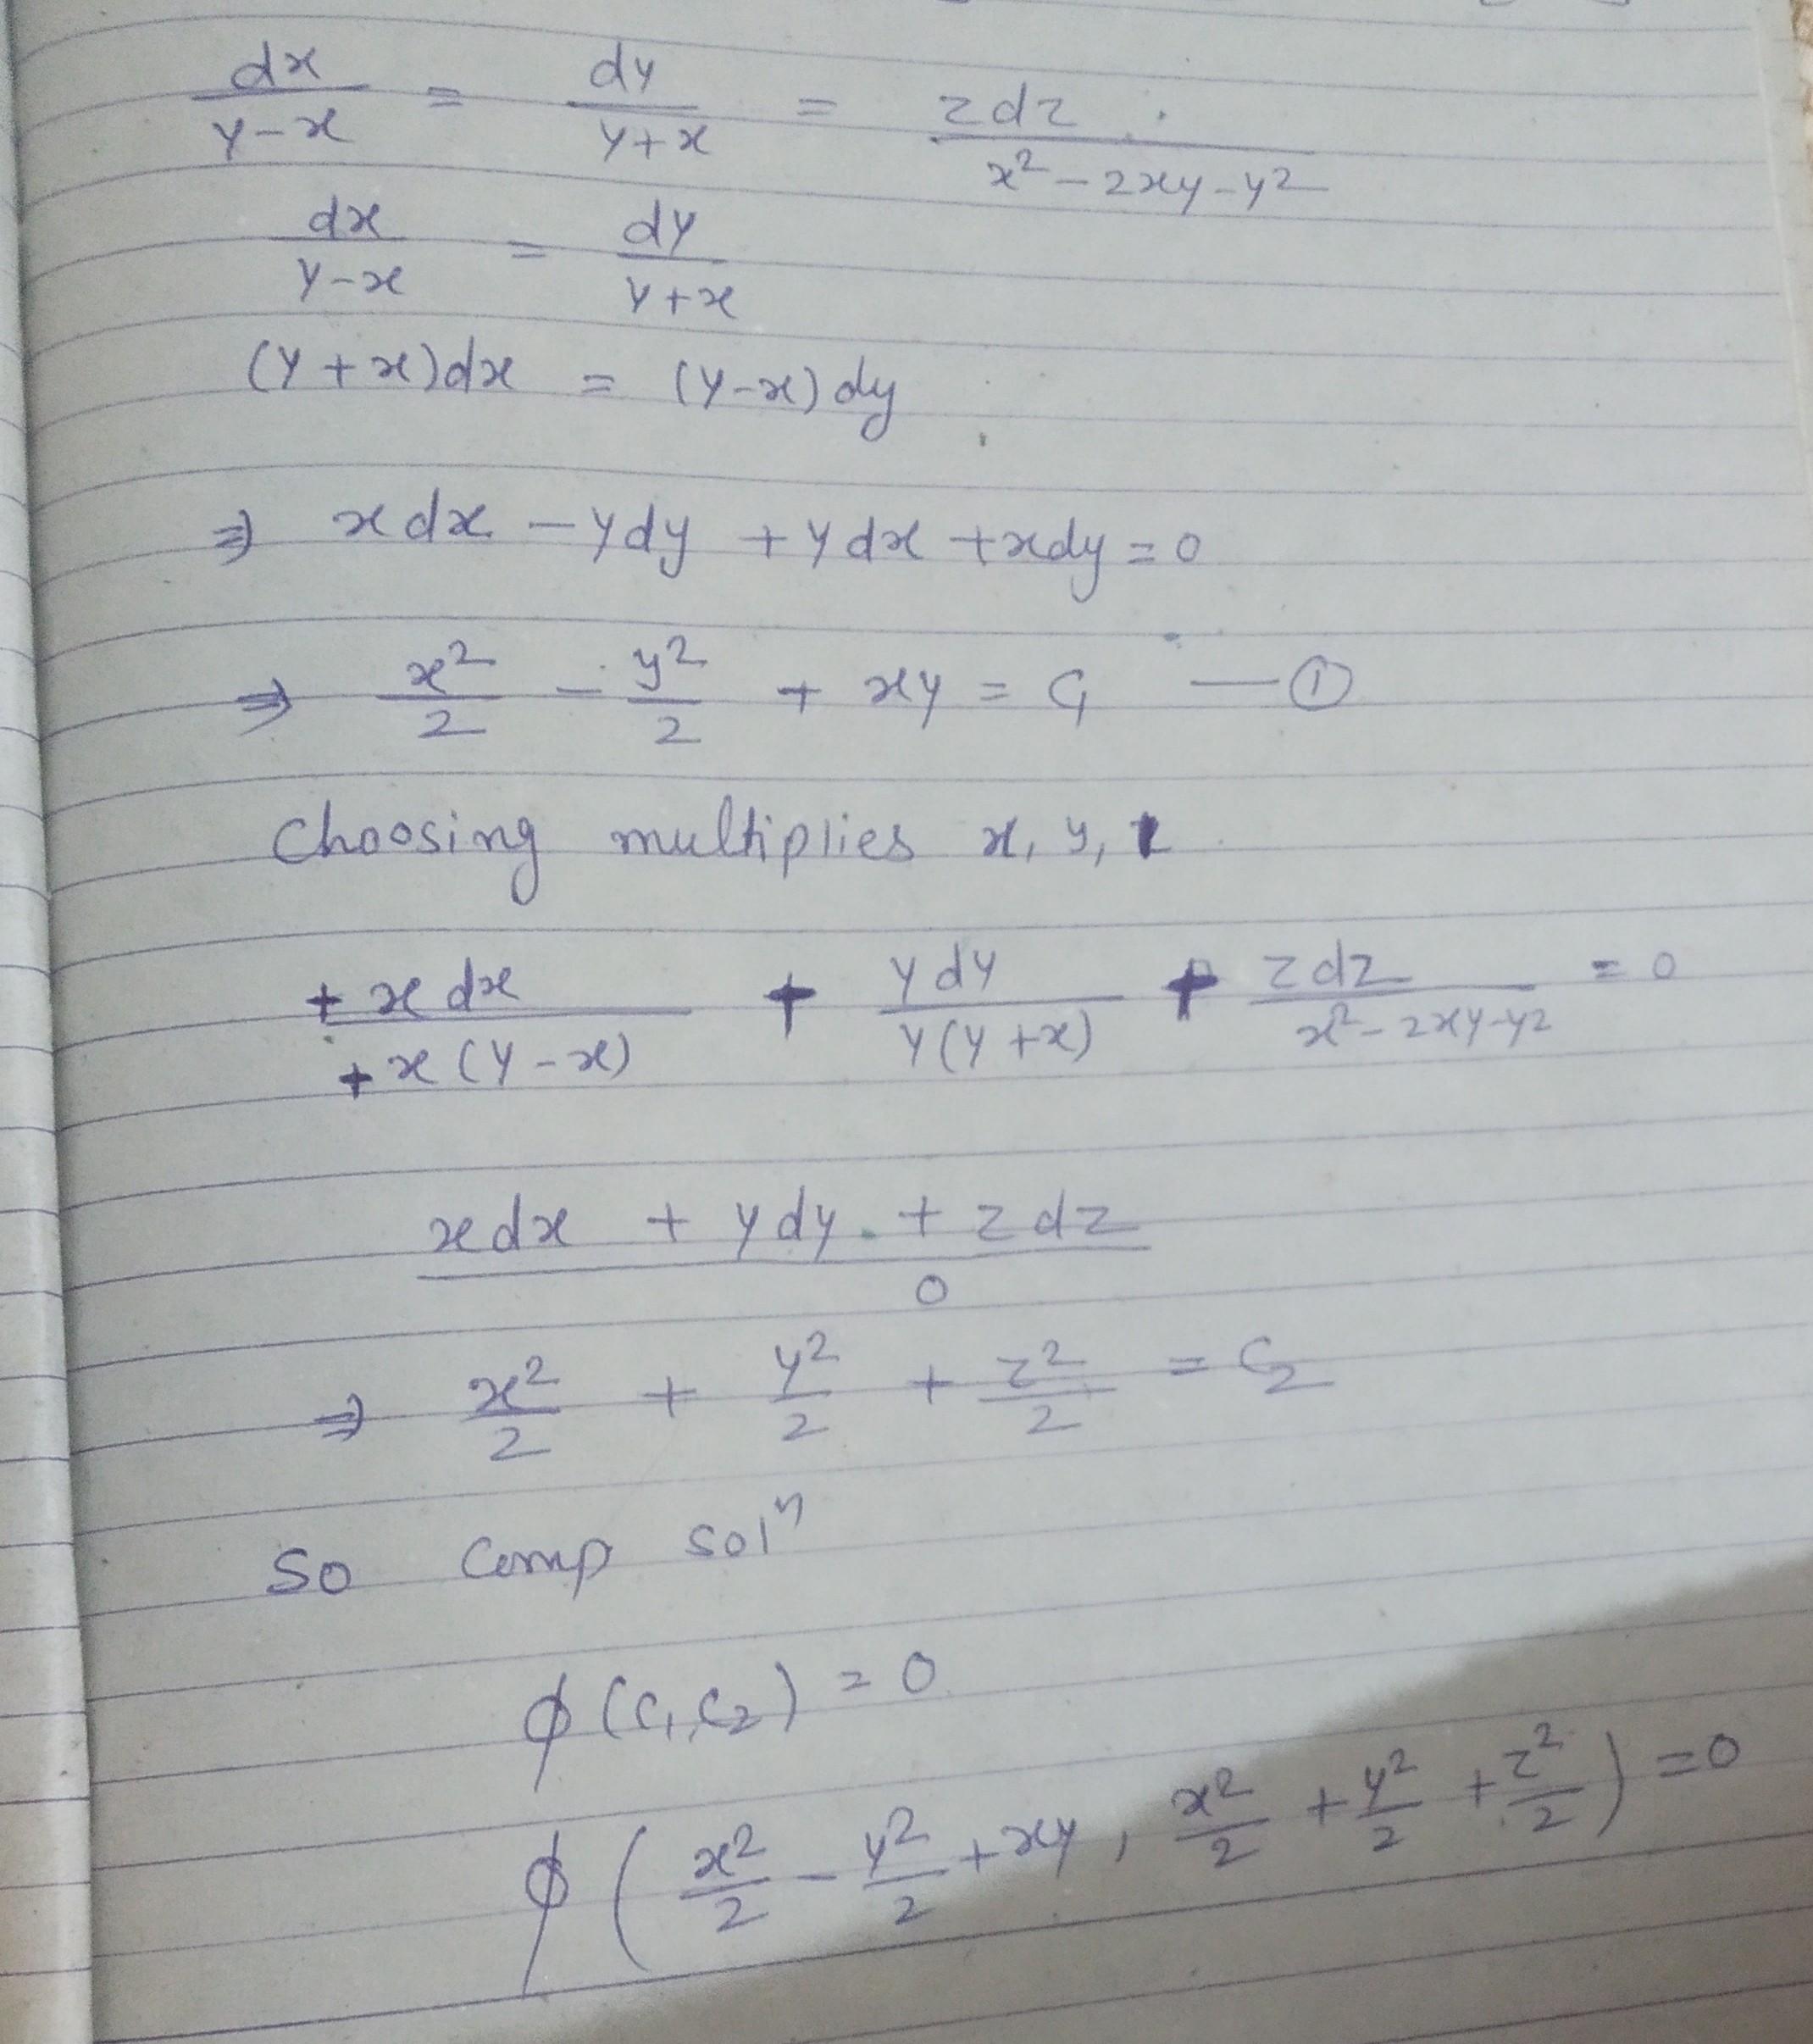 dx/(y-x) = dy/(y+x) = zdz/(x²-2xy-y²)
dx/(y-x) = dy/(y+x)
(y+x)dx = (y-x)dy
⇒ xdx - ydy + ydx + xdy = 0
⇒ x²/2 - y²/2 + xy = C₁ — ①
Choosing multiplies x, y, 1
+xdx/(+x(y-x)) + ydy/(y(y+x)) + zdz/(x²-2xy-y²) = 0
(xdx + ydy + zdz)/0
⇒ x²/2 + y²/2 + z²/2 = C₂
So Comp solⁿ
ϕ(C₁,C₂) = 0
ϕ(x²/2 - y²/2 + xy, x²/2 + y²/2 + z²/2) = 0